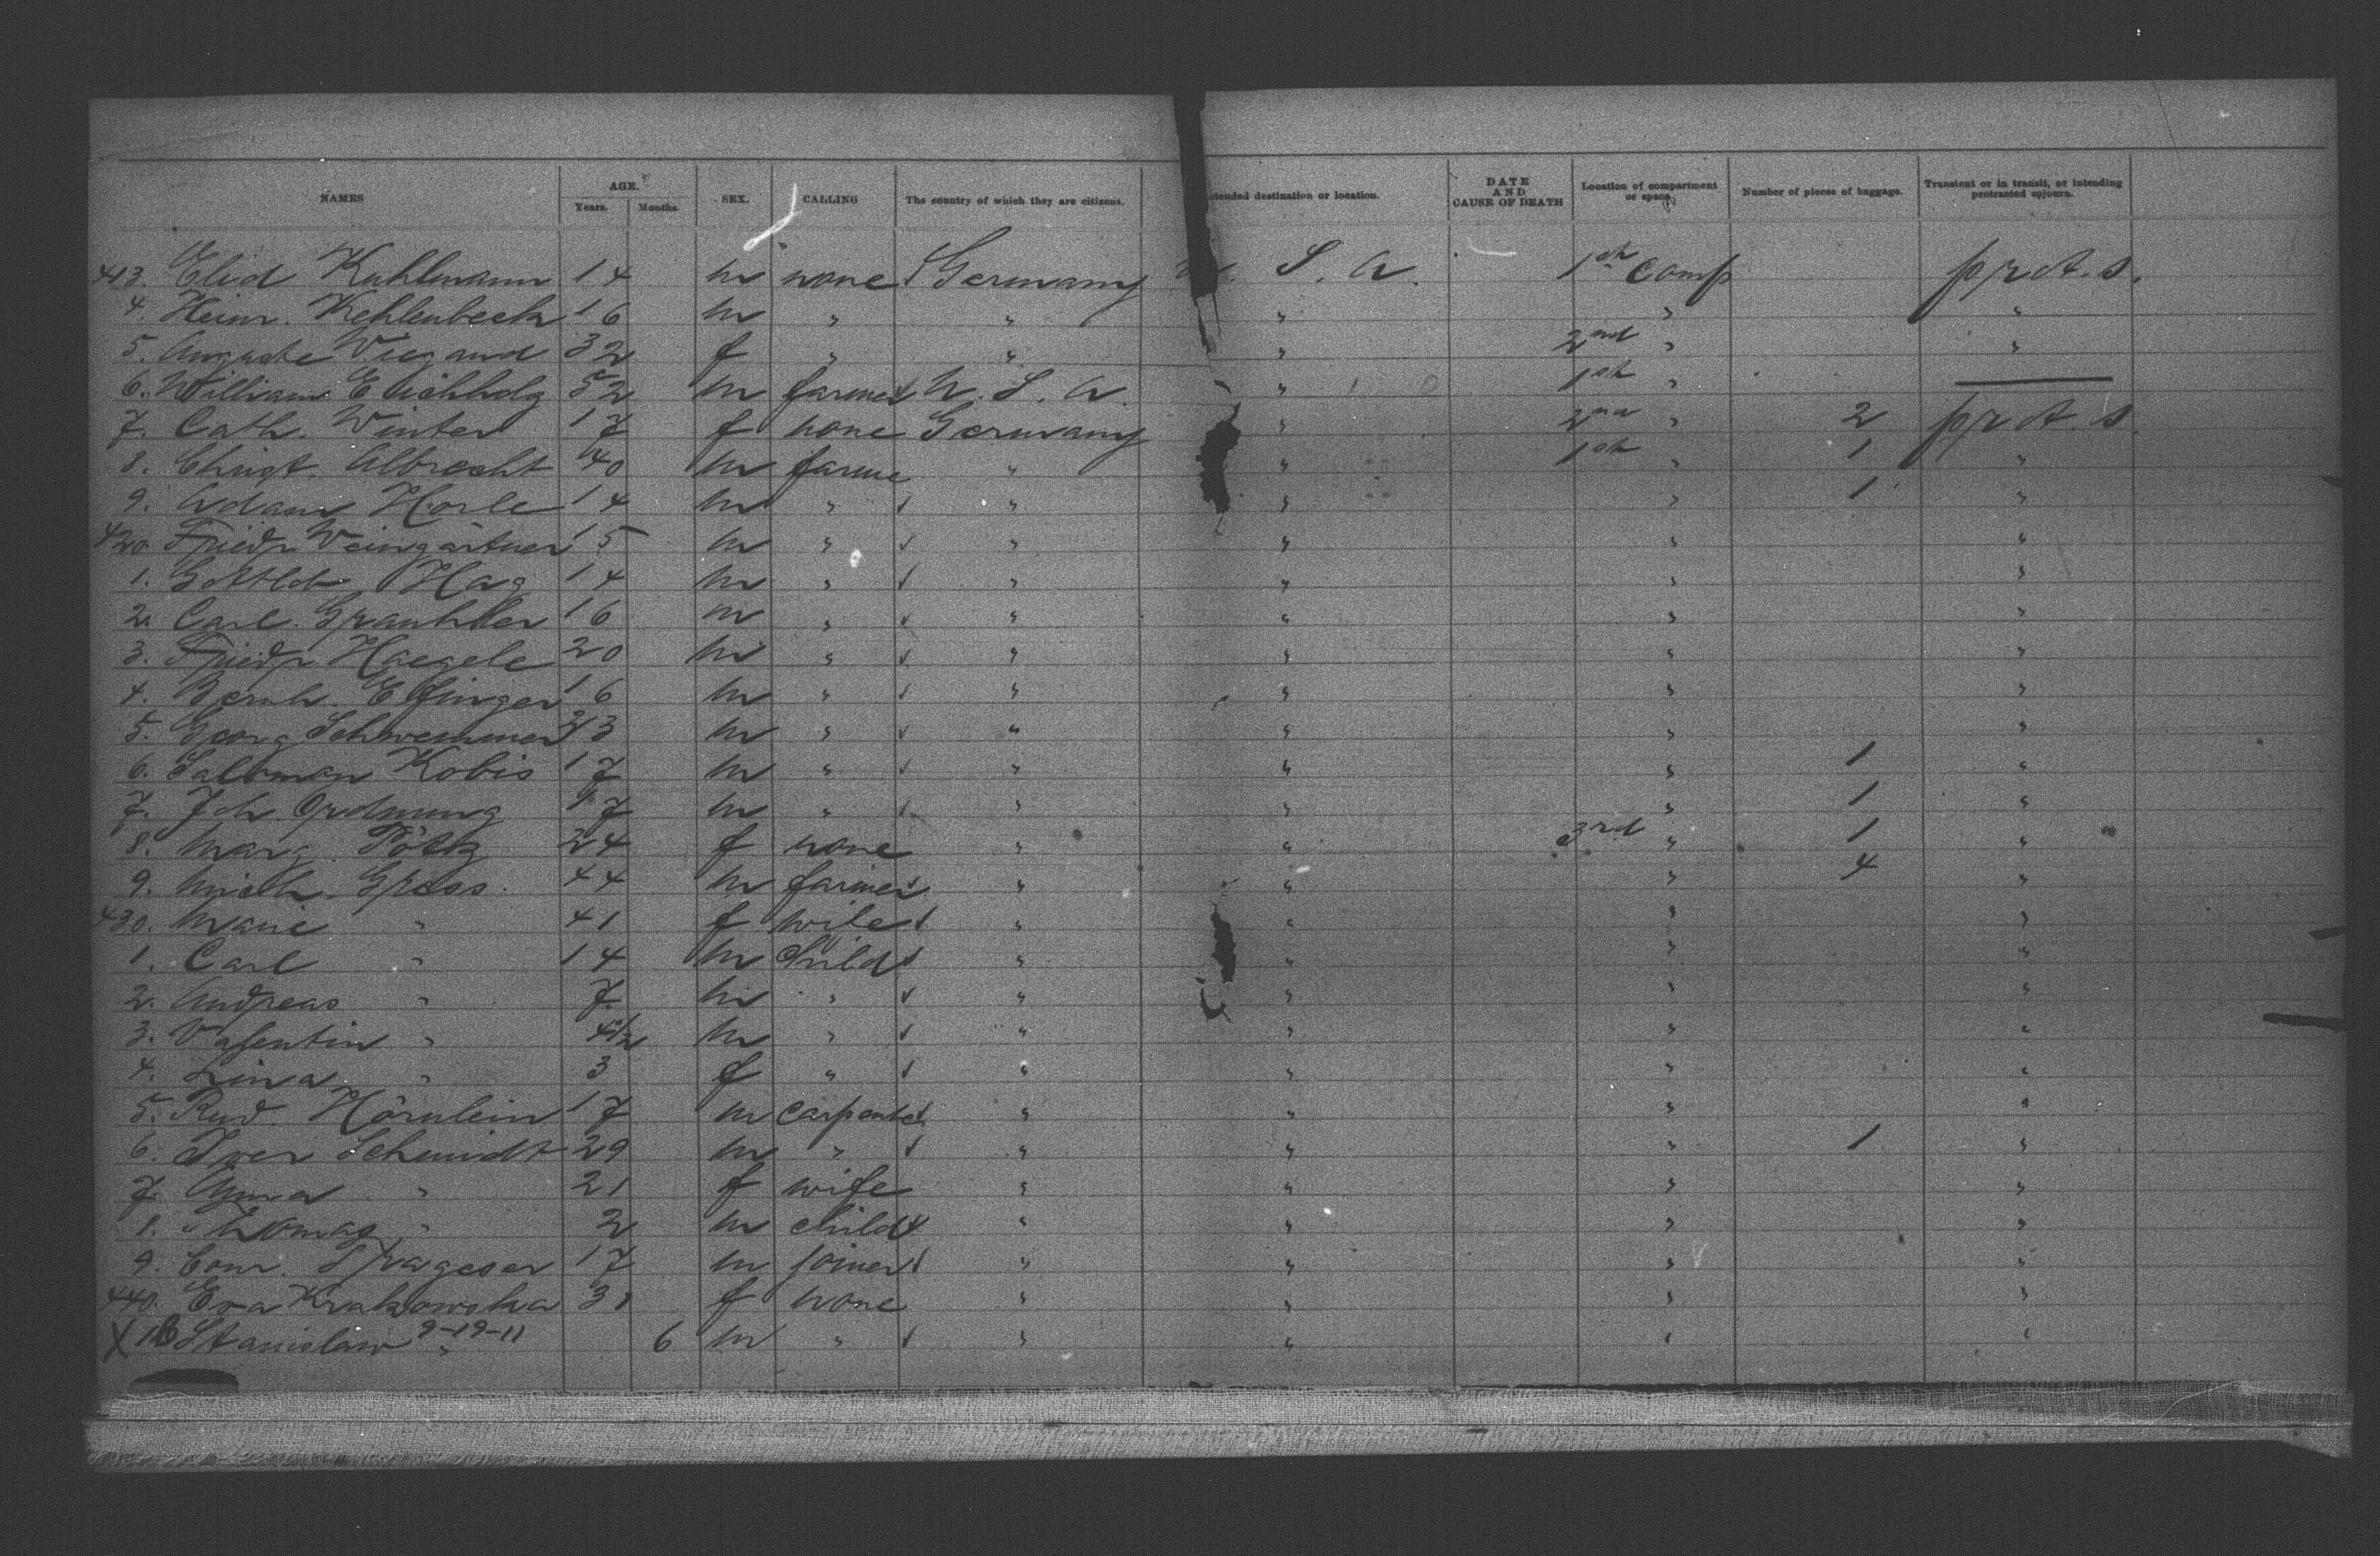 NAMES AGE. Years. Months. SEX. CALLING The country of which they are citizens. ntended destination or location. DATE AND CAUSE OF DEATH Location of compartment or space. Number of pieces of baggage. Transient or in transit, or intending protracted sojourn.
413. Elid Kuhlmann 14 m none Germany U. S. A. 1st Comp prot. s.
4. Heinr. Kehlenbeck 16 m " " " " "
5. Auguste Wiegand 32 f " " " 2nd " "
6. William Eichholz 52 m farmer U. S. A. " 1st "
7. Cath. Winter 17 f none Germany " 2nd " 2 prot. s.
8. Christ. Albrecht 40 m farme " " 1st " 1 "
9. Adam Horle 14 m " " " " 1 "
420 Friedr Weingärtner 15 m " " " " "
1. Gottlob Hag 14 m " " " " "
2. Carl 16 m " " " " "
3. Friedr Haegele 20 m " " " " "
4. Bernh. Effinger 16 m " " " " "
5. Georg Schwemmer 33 m " " " " "
6. Salomon Kobis 17 m " " " " 1 "
7. Joh Ordnung 17 m " " " " 1 "
8. Marg. 24 f none " " 3rd " 1 "
9. Mich. Gross. 44 m farmer " " " 4 "
430. Marie " 41 f wife " " " "
1. Carl " 14 m Child " " " "
2. Andreas " 7 m " " " " "
3. Valentin " 4 1/2 m " " " " "
4. Lina " 3 f " " " " "
5. Rud. Hörnlein 17 m carpenter " " " "
6. Iver Schmidt 29 m " " " " 1 "
7. Anna " 21 f wife " " " "
8. Thomas " 2 m child " " " "
9. Conr. Spageser 17 m joiner " " " "
440. Eva Krakowska 31 f none " " " "
X 1 B Stanislaw " 9-19-11 6 m " " " " "